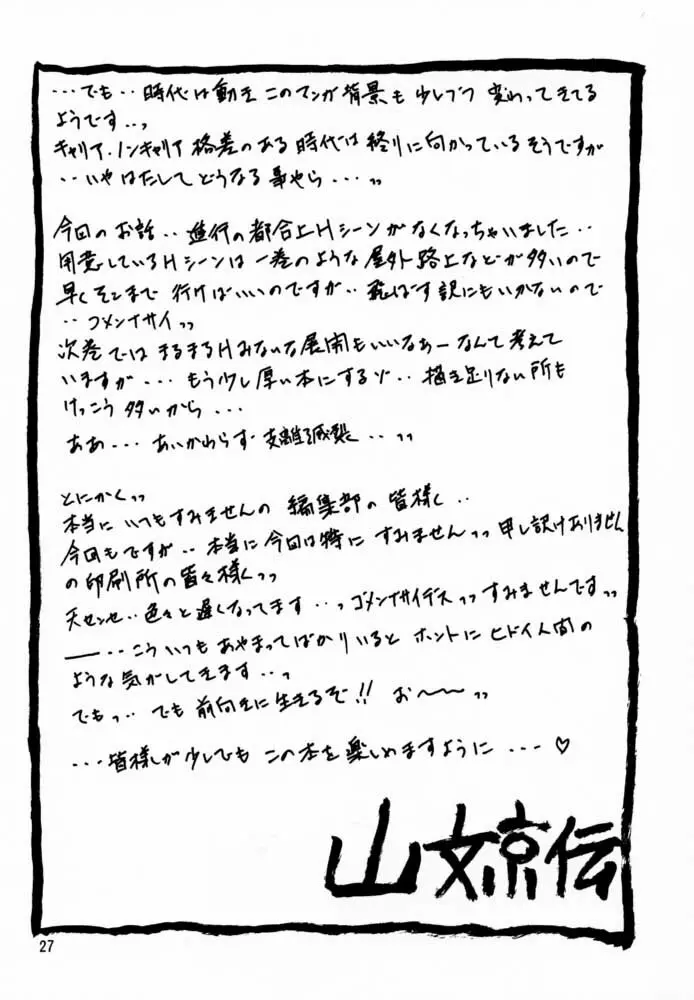 ・・・でも・・時代は動き このマンガ背景も少しづつ 変わってきてる
ようです・・っ
キャリア・ノンキャリア格差のある時代は終りに向かっているそうですが
・・いやはたしてどうなる事やら・・・っっ
今回のお話・・進行の都合上Hシーンがなくなっちゃいました・・
用意しているHシーンは一巻のような屋外路上などが多いので
早くそこまで行けばいいのですが・・飛ばす訳にもいかないので
・・ゴメンナサイっっ
次巻ではまるまるHみたいな展開もいいなぁーなんて考えて
いますが・・・もう少し厚い本にするゾ・・描き足りない所も
けっこう多いから・・・
ああ・・・あいかわらず支離滅裂・・っっ
とにかくっっ
本当にいつもすみませんの編集部の皆様く・・
今回もですが・・本当に今回は特にすみませんっっ申し訳ありません
の印刷所の皆々様くっっ
天センセ・・色々と遅くなってます・・っゴメンナサイデスっっすみませんですっっ
―・・こういつもあやまってばかりいると ホントにヒドイ人間の
ような気がしてきます・・っ
でもっ・・でも前向きに生きるぞ!! お〜〜っっ
・・・皆様が少しでも この本を楽しめますように・・・♡
山文京伝
27